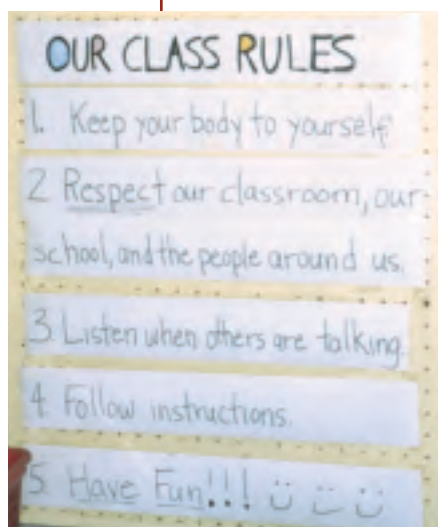 OUR CLASS RULES
1. Keep your body to yourself
2 Respect our classroom, our
school, and the people around us.
3. Listen when others are talking.
4. Follow instructions.
5. Have Fun!!!